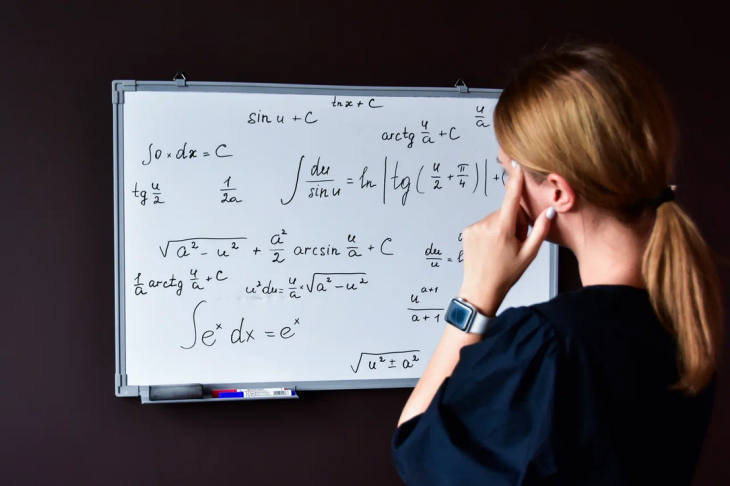 tnx + C
sin u + C
u/a
arctg u/a + C
∫o × dx = C
tg u/2
1/2a
∫ du/sin u = ln |tg( u/2 + π/4 )| +
√a² - u² + a²/2 arcsin u/a + C
du/u =
1/a arctg u/a + C
u²du = u/a × √a² - u²
u^a+1/a+1
∫e^x dx = e^x
√u² ± a²